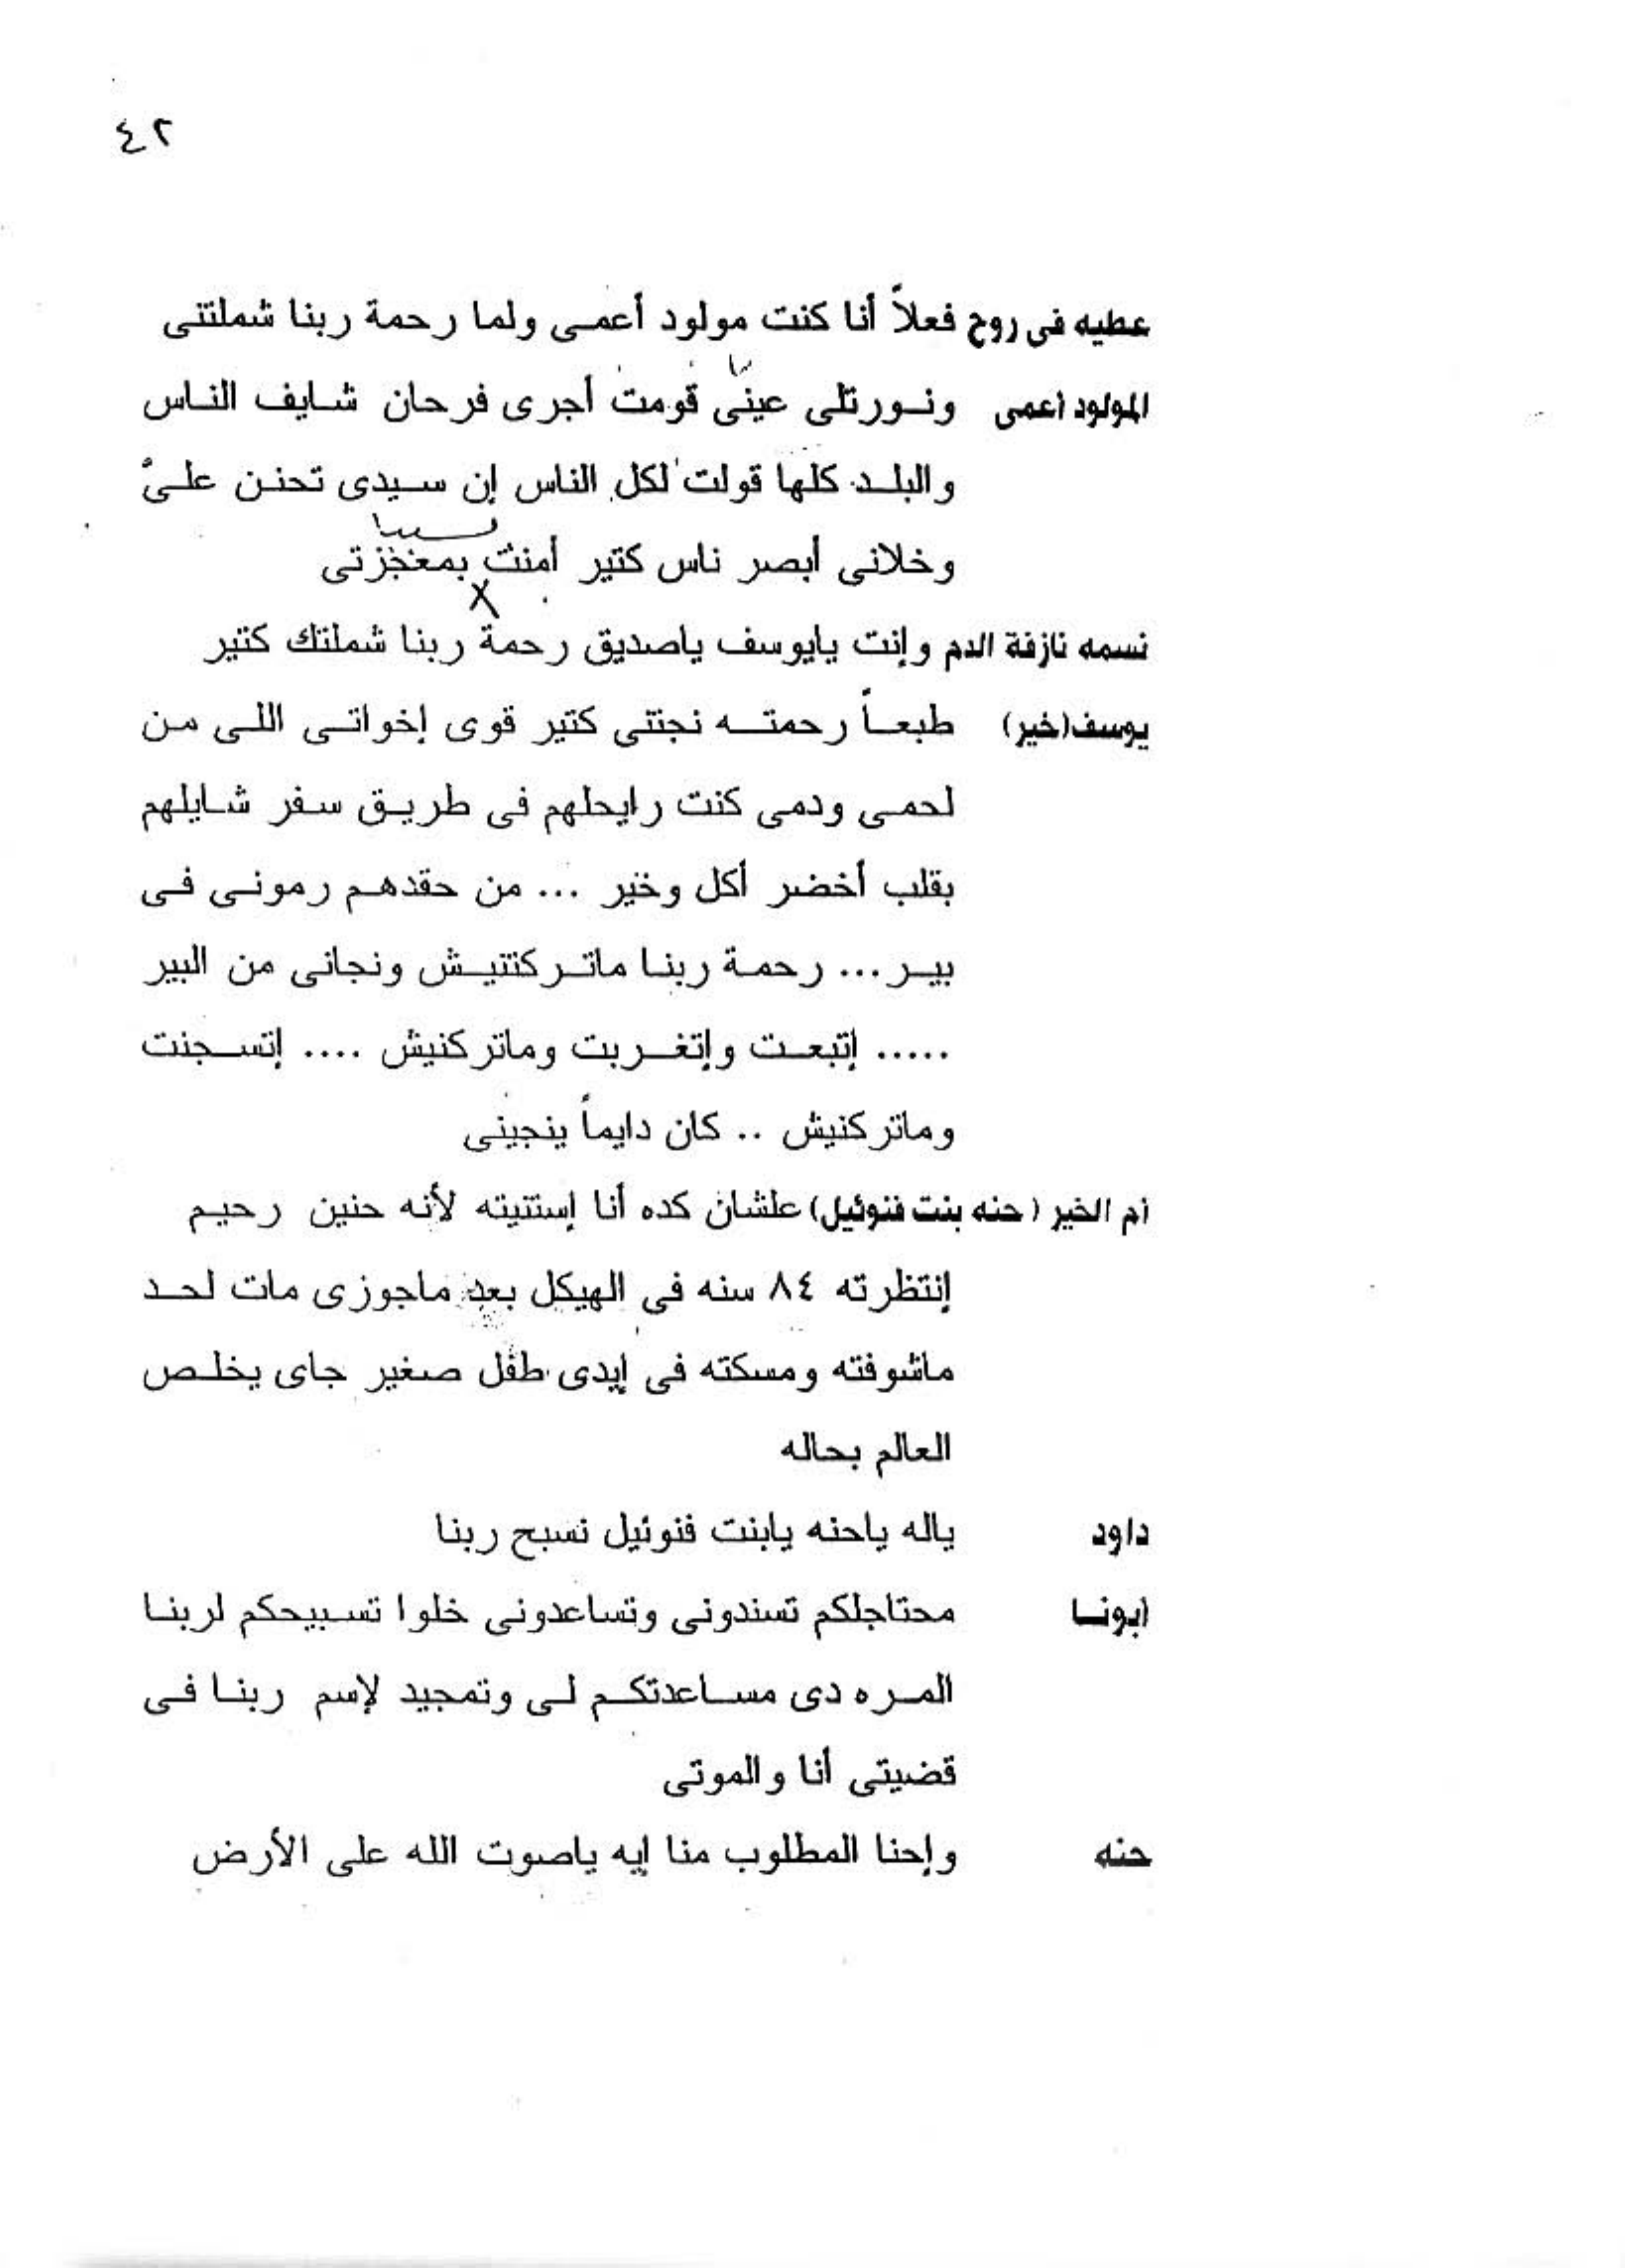 ٤٢
عطيه فى روح فعلاً أنا كنت مولود أعمى ولما رحمة ربنا شملتنى
المولود أعمى ونورتلى عينى قومت أجرى فرحان شايف الناس
والبلد كلها قولت لكل الناس إن سيدى تحنن علىّ
وخلانى أبصر ناس كتير أمنت بمعجزتى
نسمه نازفة الدم وإنت يايوسف ياصديق رحمة ربنا شملتك كتير
يوسف(خير) طبعاً رحمته نجتنى كتير قوى إخواتى اللى من
لحمى ودمى كنت رايحلهم فى طريق سفر شايلهم
بقلب أخضر أكل وخير ... من حقدهم رمونى فى
بير ... رحمة ربنا ماتركتنيش ونجانى من البير
..... إتبعت وإتغربت وماتركنيش .... إتسجنت
وماتركنيش .. كان دايماً ينجينى
أم الخير (حنه بنت فنوئيل) علشان كده أنا إستنيته لأنه حنين رحيم
إنتظرته ٨٤ سنه فى الهيكل بعد ماجوزى مات لحد
ماشوفته ومسكته فى إيدى طفل صغير جاى يخلص
العالم بحاله
داود ياله ياحنه يابنت فنوئيل نسبح ربنا
أبونا محتاجلكم تسندونى وتساعدونى خلوا تسبيحكم لربنا
المره دى مساعدتكم لى وتمجيد لإسم ربنا فى
قضيتى أنا والموتى
حنه وإحنا المطلوب منا إيه ياصوت الله على الأرض